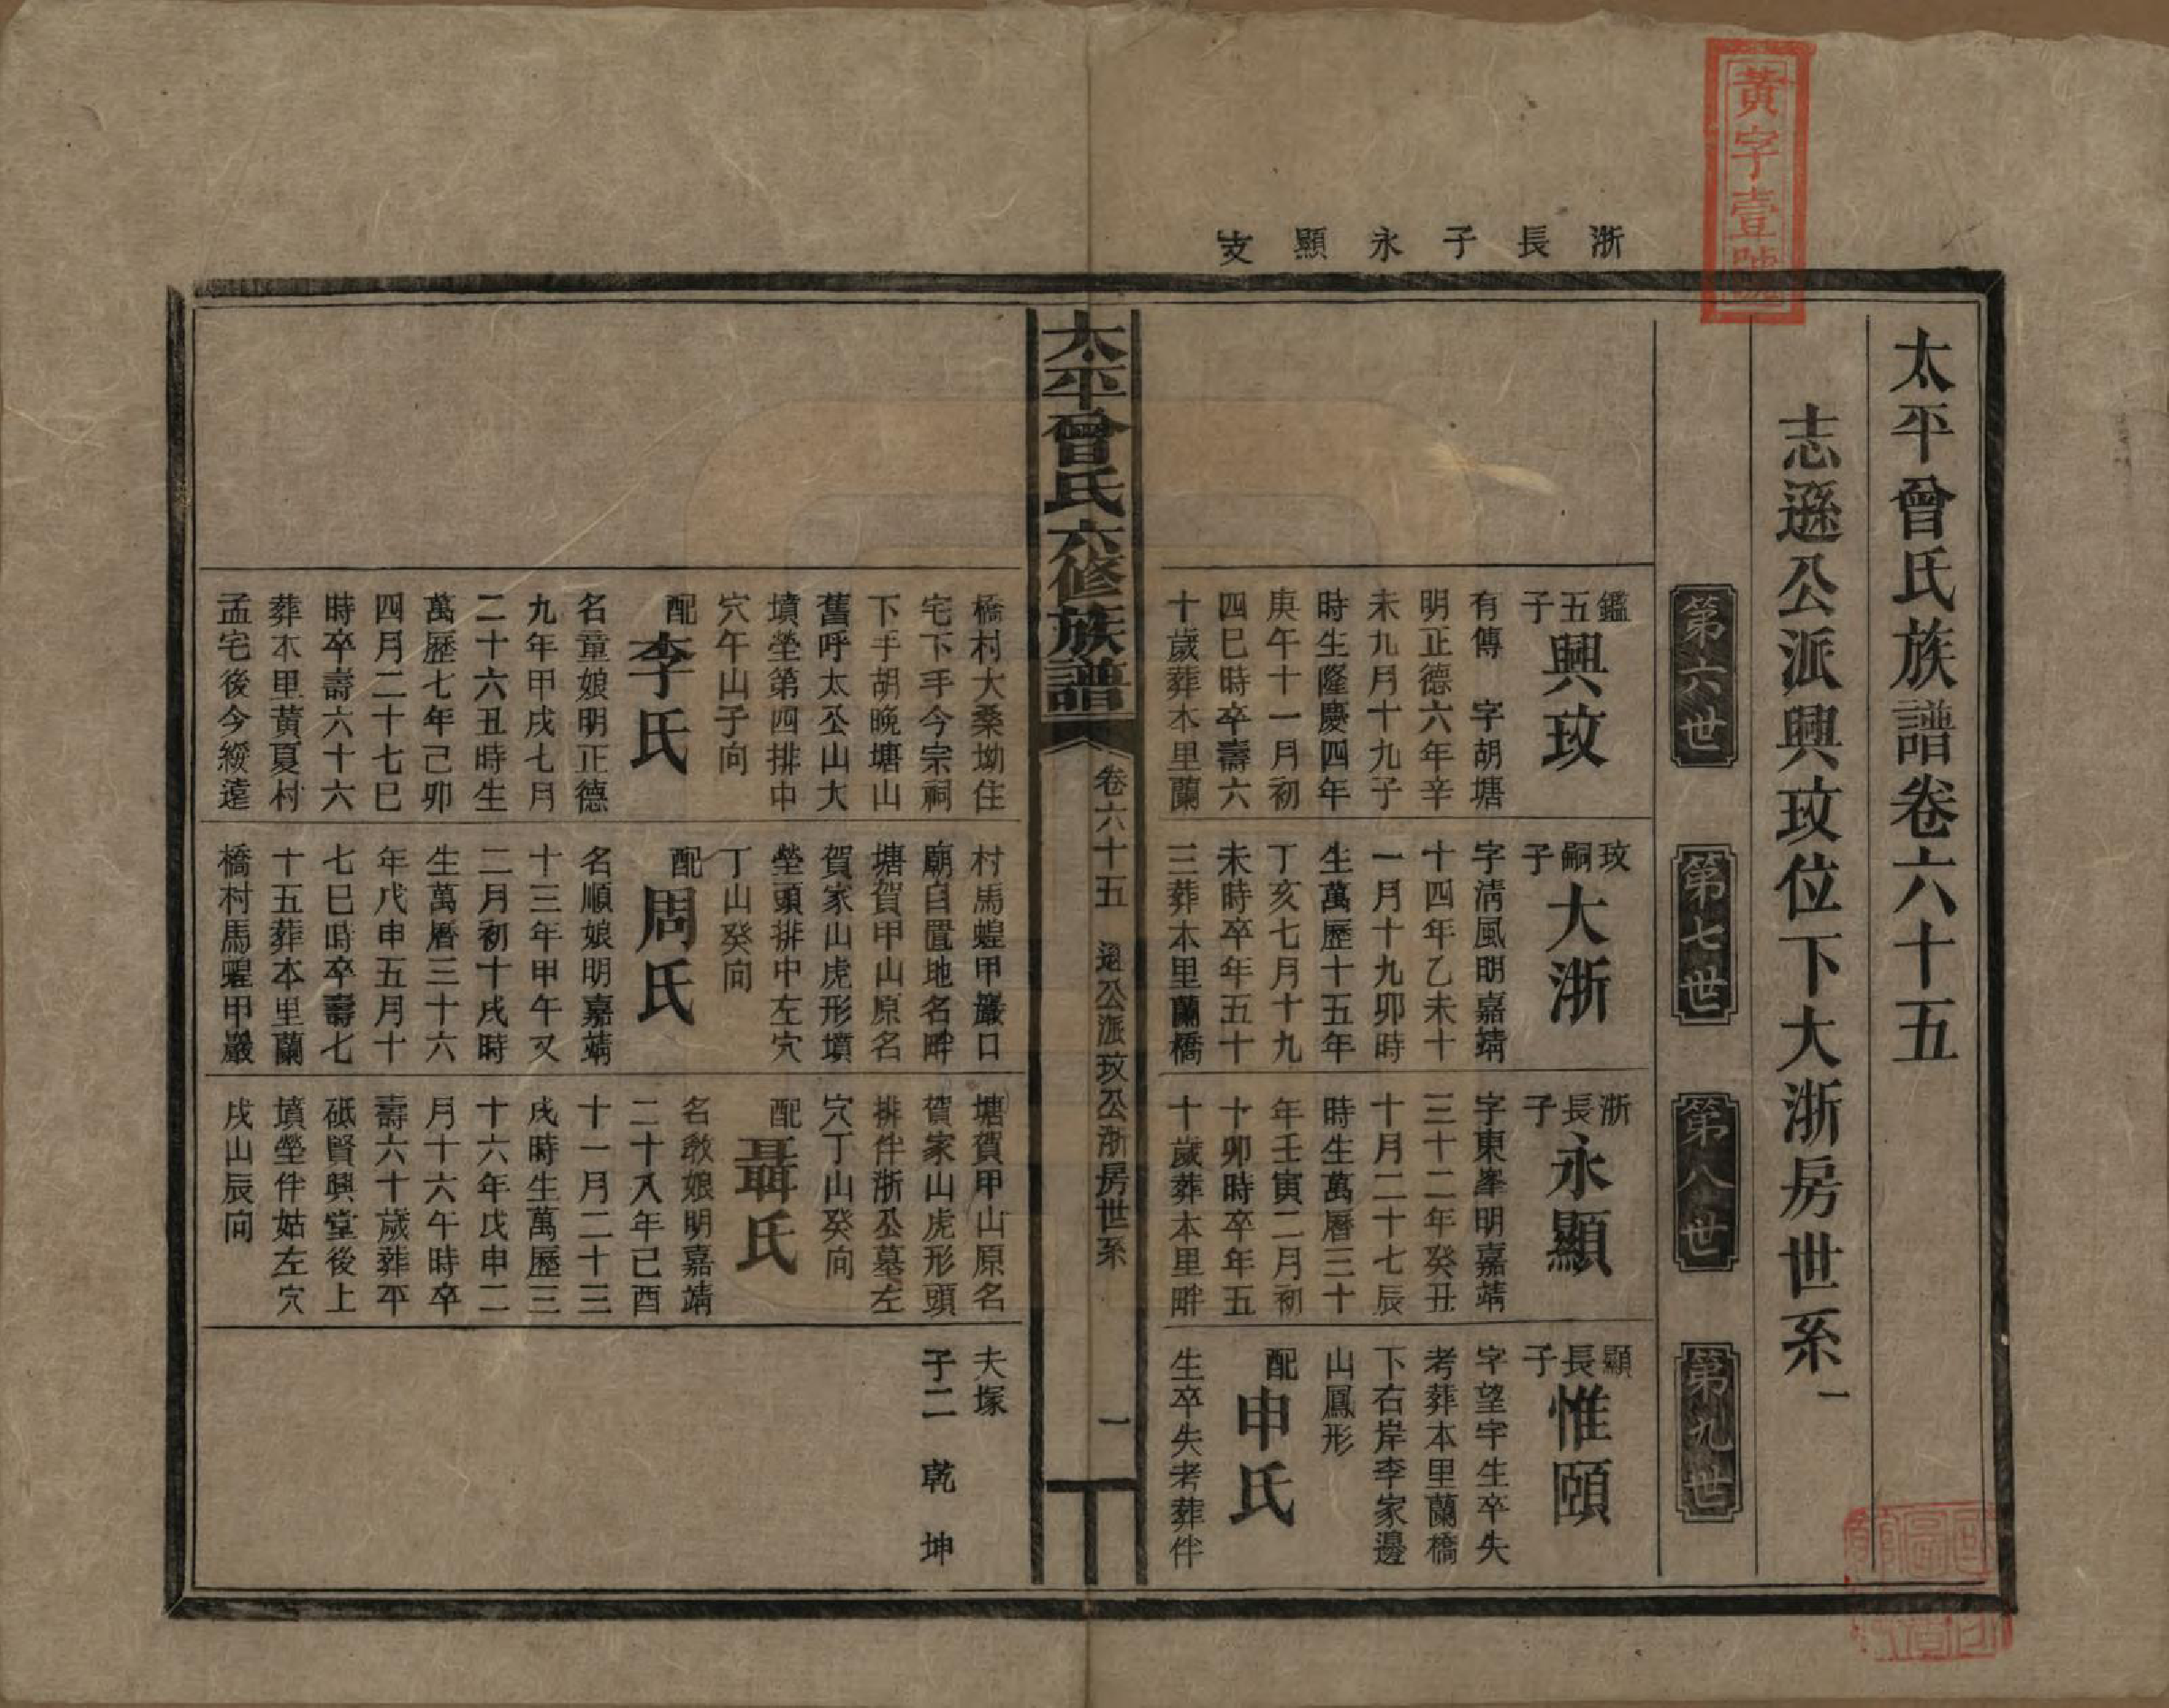 黃字壹號
浙長子永顯支
太平曾氏族譜卷六十五
志遜公派興玟位下大浙房世系一
第六世
第七世
第八世
第九世
鑑五子
興玟
有傳 字胡塘
明正德六年辛
未九月十九子
時生隆慶四年
庚午十一月初
四巳時卒壽六
十歲葬本里蘭
橋村大桑坳住
宅下手今宗祠
下手胡晚塘山
舊呼太公山大
墳塋第四排中
穴午山子向
配李氏
名童娘明正德
九年甲戌七月
二十六丑時生
萬歷七年己卯
四月二十七巳
時卒壽六十六
葬本里黃夏村
孟宅後今綏遠
玟嗣子
大浙
字淸風明嘉靖
十四年乙未十
一月十九卯時
生萬歷十五年
丁亥七月十九
未時卒年五十
三葬本里蘭橋
村馬蝗甲巖口
廟自置地名畔
塘賀甲山原名
賀家山虎形墳
塋頭排中左穴
丁山癸向
配周氏
名順娘明嘉靖
十三年甲午又
二月初十戌時
生萬曆三十六
年戊申五月十
七巳時卒壽七
十五葬本里蘭
橋村馬蝗甲巖
浙長子
永顯
字東峯明嘉靖
三十二年癸丑
十月二十七辰
時生萬曆三十
年壬寅二月初
十卯時卒年五
十歲葬本里畔
塘賀甲山原名
賀家山虎形頭
排伴浙公墓左
穴丁山癸向
配聶氏
名敢娘明嘉靖
二十八年己酉
十一月二十三
戌時生萬歷三
十六年戊申二
月十六午時卒
壽六十歲葬平
砥賢興堂後上
墳塋伴姑左穴
戌山辰向
顯長子
惟頤
字望宇生卒失
考葬本里蘭橋
下右岸李家邊
山鳳形
配申氏
生卒失考葬伴
夫塚
子二 乾 坤
太平曾氏六修族譜
卷六十五 遜公派玟公浙房世系 一